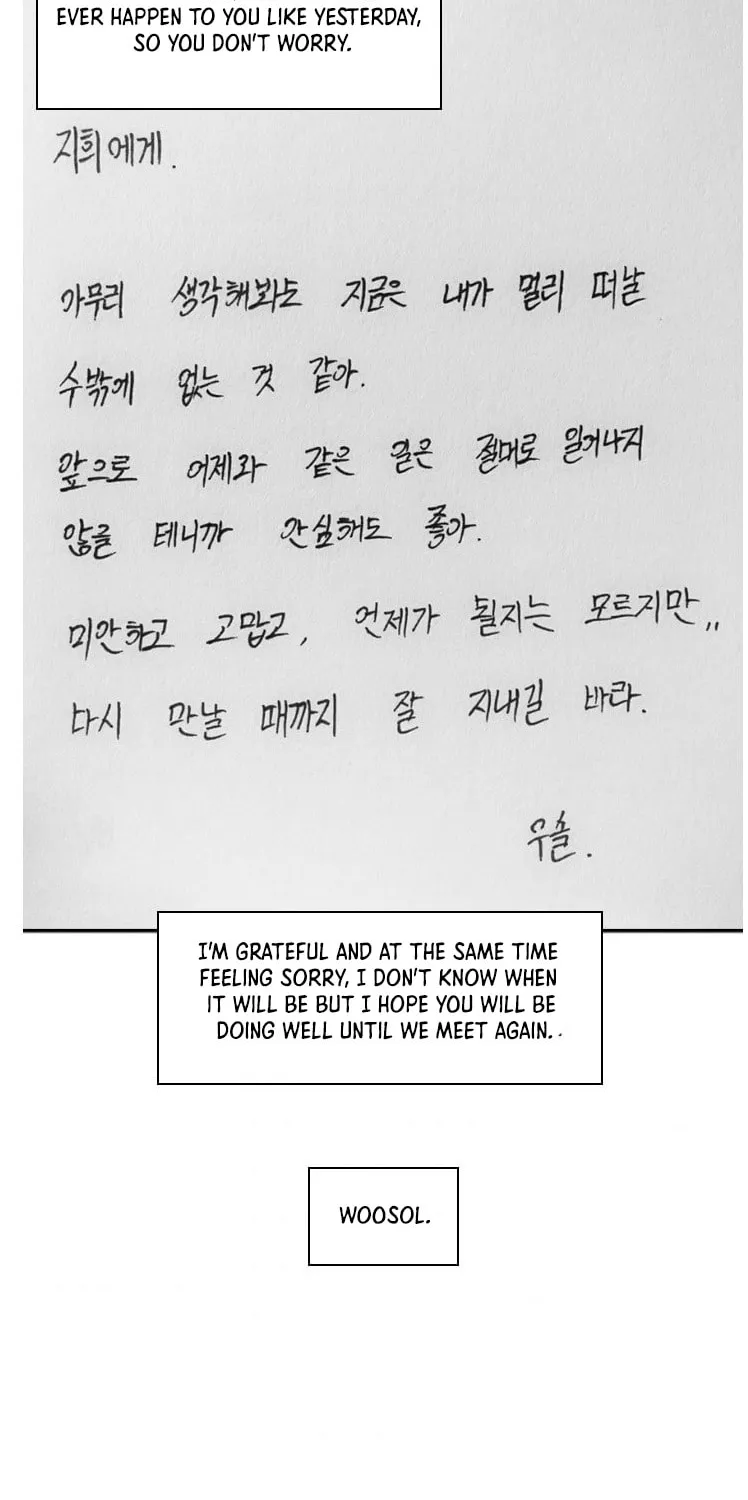 EVER HAPPEN TO YOU LIKE YESTERDAY,
SO YOU DON'T WORRY.
지희에게.
아무리 생각해봐도 지금은 내가 멀리 떠날
수밖에 없는 것 같아.
앞으로 어제와 같은 일은 절대로 일어나지
않을 테니까 안심해도 좋아.
미안하고 고맙고, 언제가 될지는 모르지만,,
다시 만날 때까지 잘 지내길 바라.
우솔.
I'M GRATEFUL AND AT THE SAME TIME
FEELING SORRY, I DON'T KNOW WHEN
IT WILL BE BUT I HOPE YOU WILL BE
DOING WELL UNTIL WE MEET AGAIN..
WOOSOL.